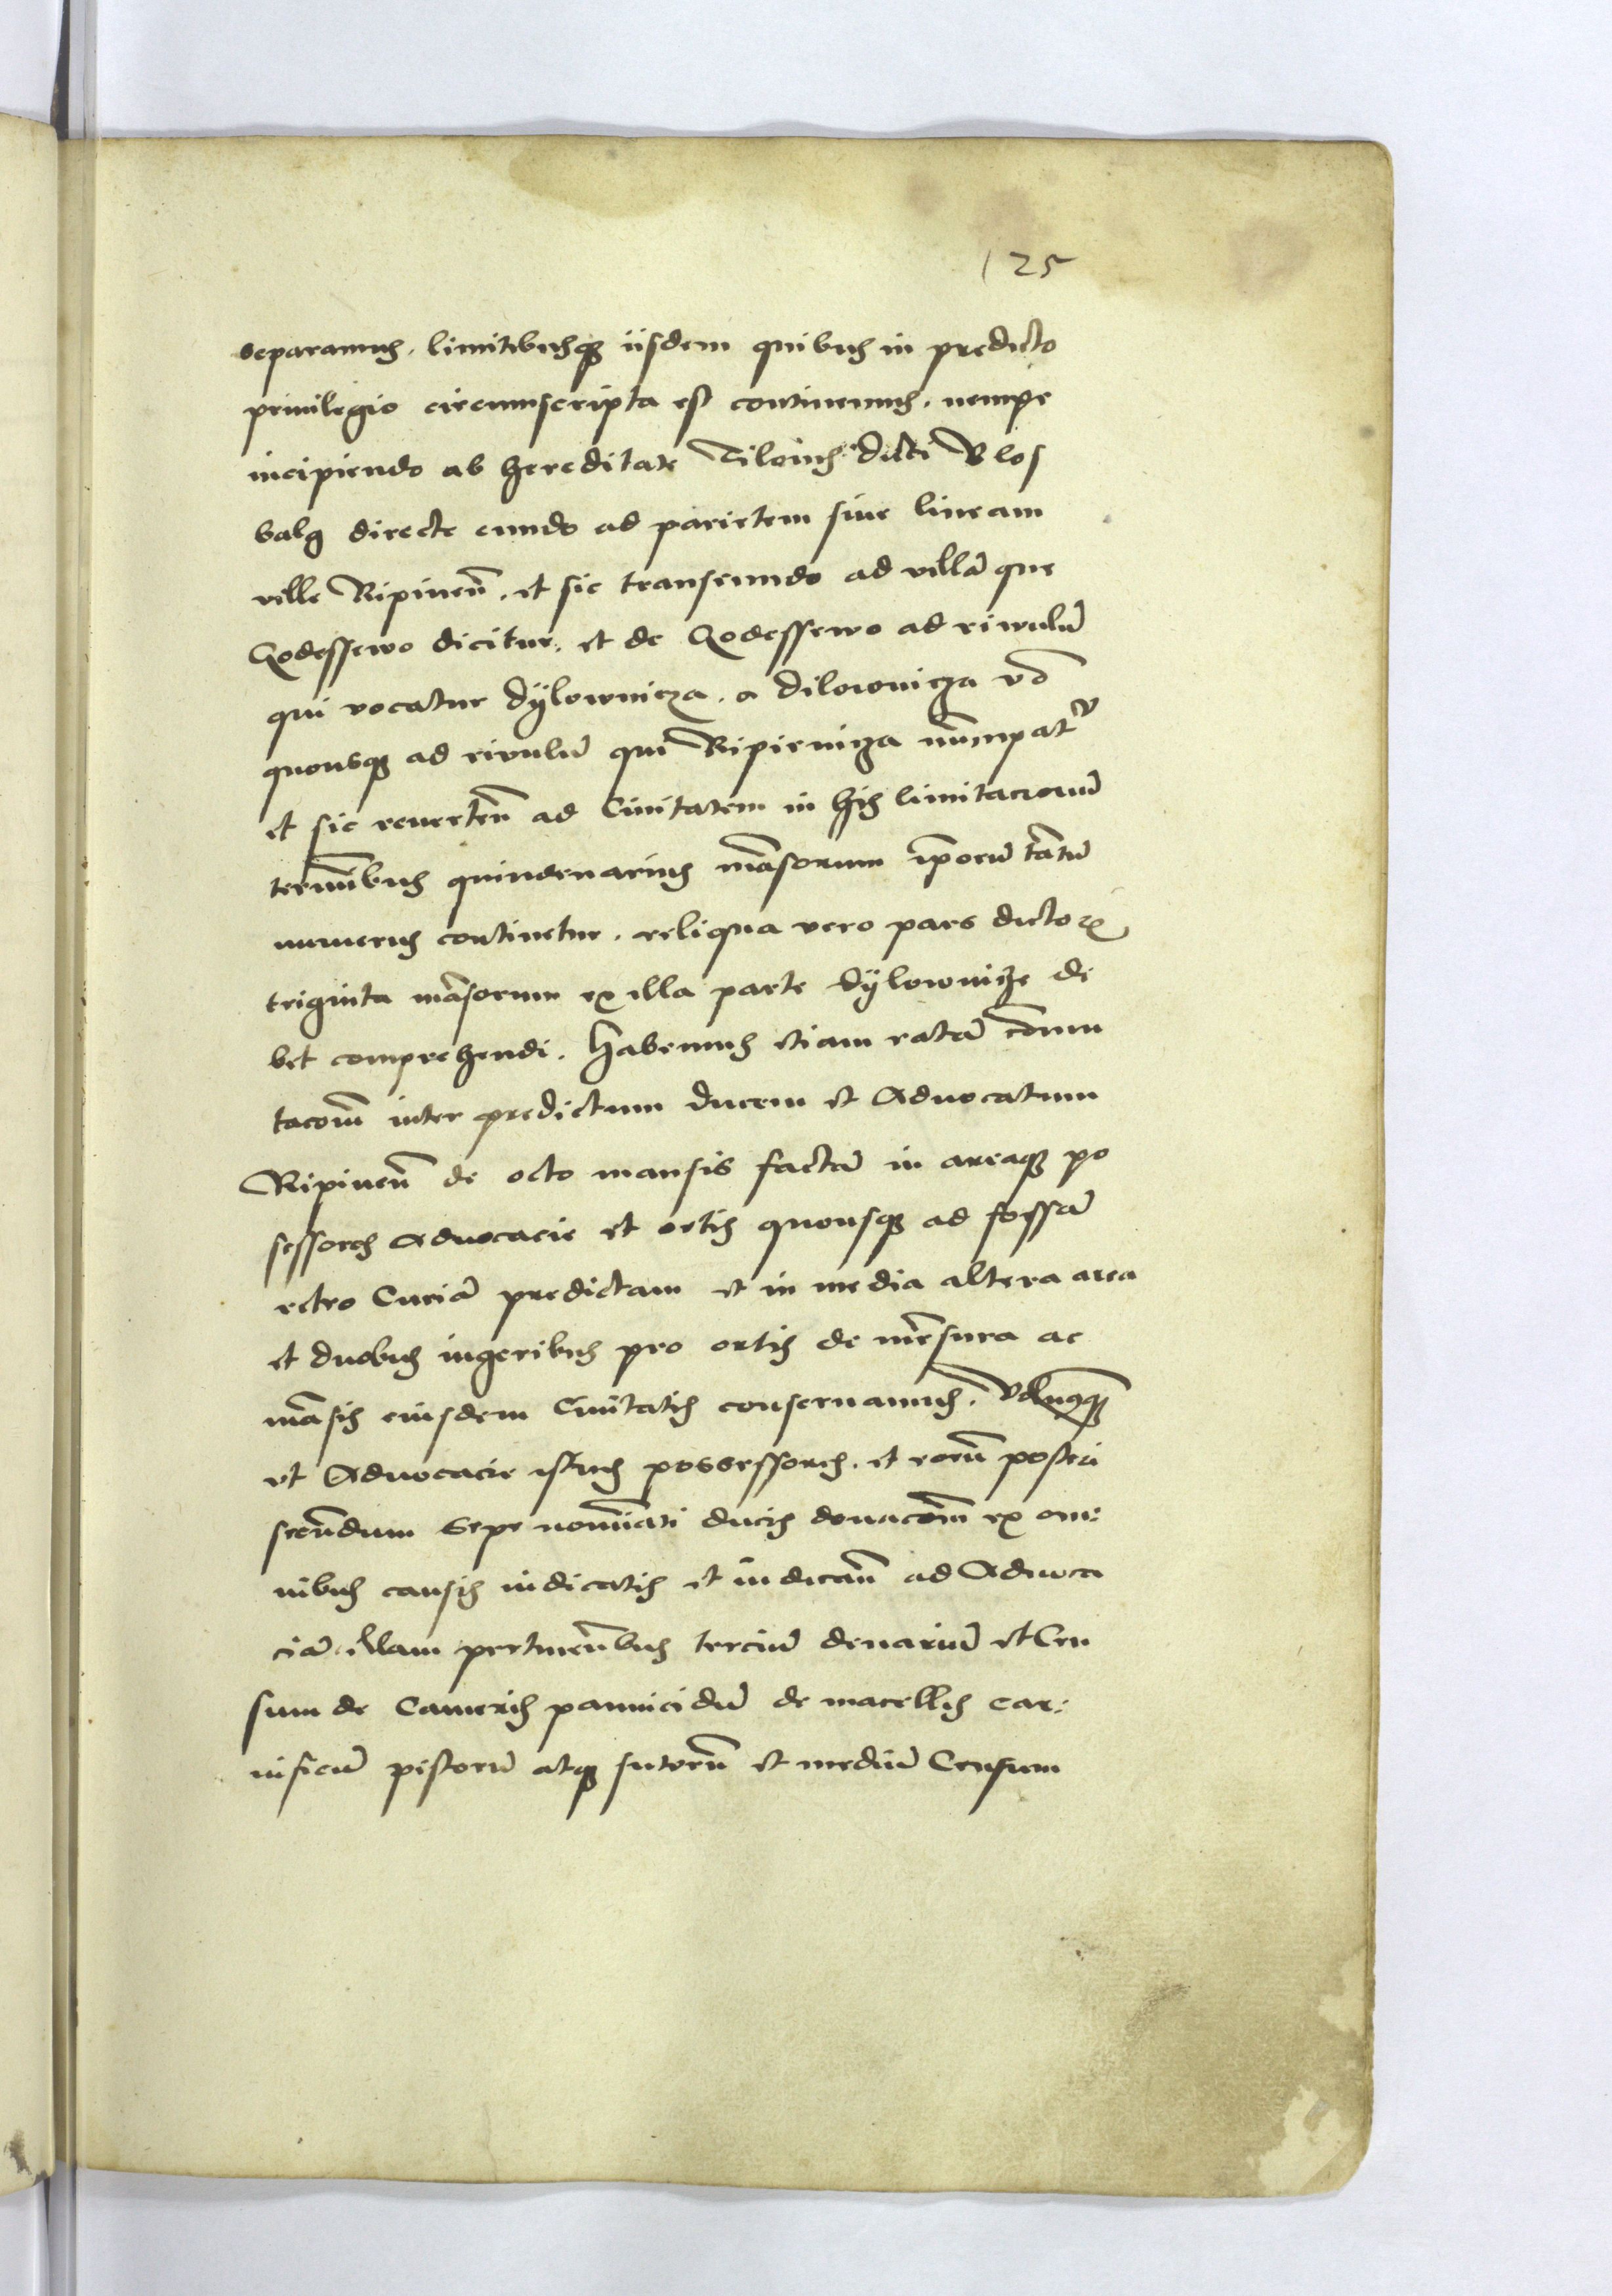 125
separamus. limitibusq3 iisdem quibus in predicto
priuilegio circumscripta est continemus. nempe
incipiendo ab hereditate Tiloius dicti Vlos
balg directe eundo ad parietem siue lineam
ville Ripineñ. et sic transeundo ad villā que
Godessewo dicitur. et de Godessewo ad riwulū
qui vocatur Dÿlownicza. a Dilownicza vō
quousq3 ad riuulū qui Ripienicza nūmpatʳ
et sic reuerteñ ad Ciuitatem in his limitacionū
termībus quindenarius māsorum ip̄orū tātū
numerus continetur. reliqua vero pars dictoꝝ
triginta māsorum ex illa parte Dÿlownicze de
bet comprehendi. Habemus etiam ratā cōmu
tacoēm inter predictum ducem et Aduocatum
Ripineñ de octo mansis factā in areaq3 po
sessores Aduocacie et ortis quousq3 ad fossā
retro Curiā predictam et in media altera area
et duobus iugeribus pro ortis de mēsura ac
māsis eiusdem Ciuitatis conseruamus.
vt Aduocacie istius possessores. et eorū posteri
scēundum sepe nomīati ducis donacoēm ex om:
nibus causis iudicatis et iudicañ ad Aduoca
ciā illam pertineñbus terciū denariū et Cen
sum de Cameris pannicidū de macellis car:
nificū pistorū atq3 sutorū et mediū Censum